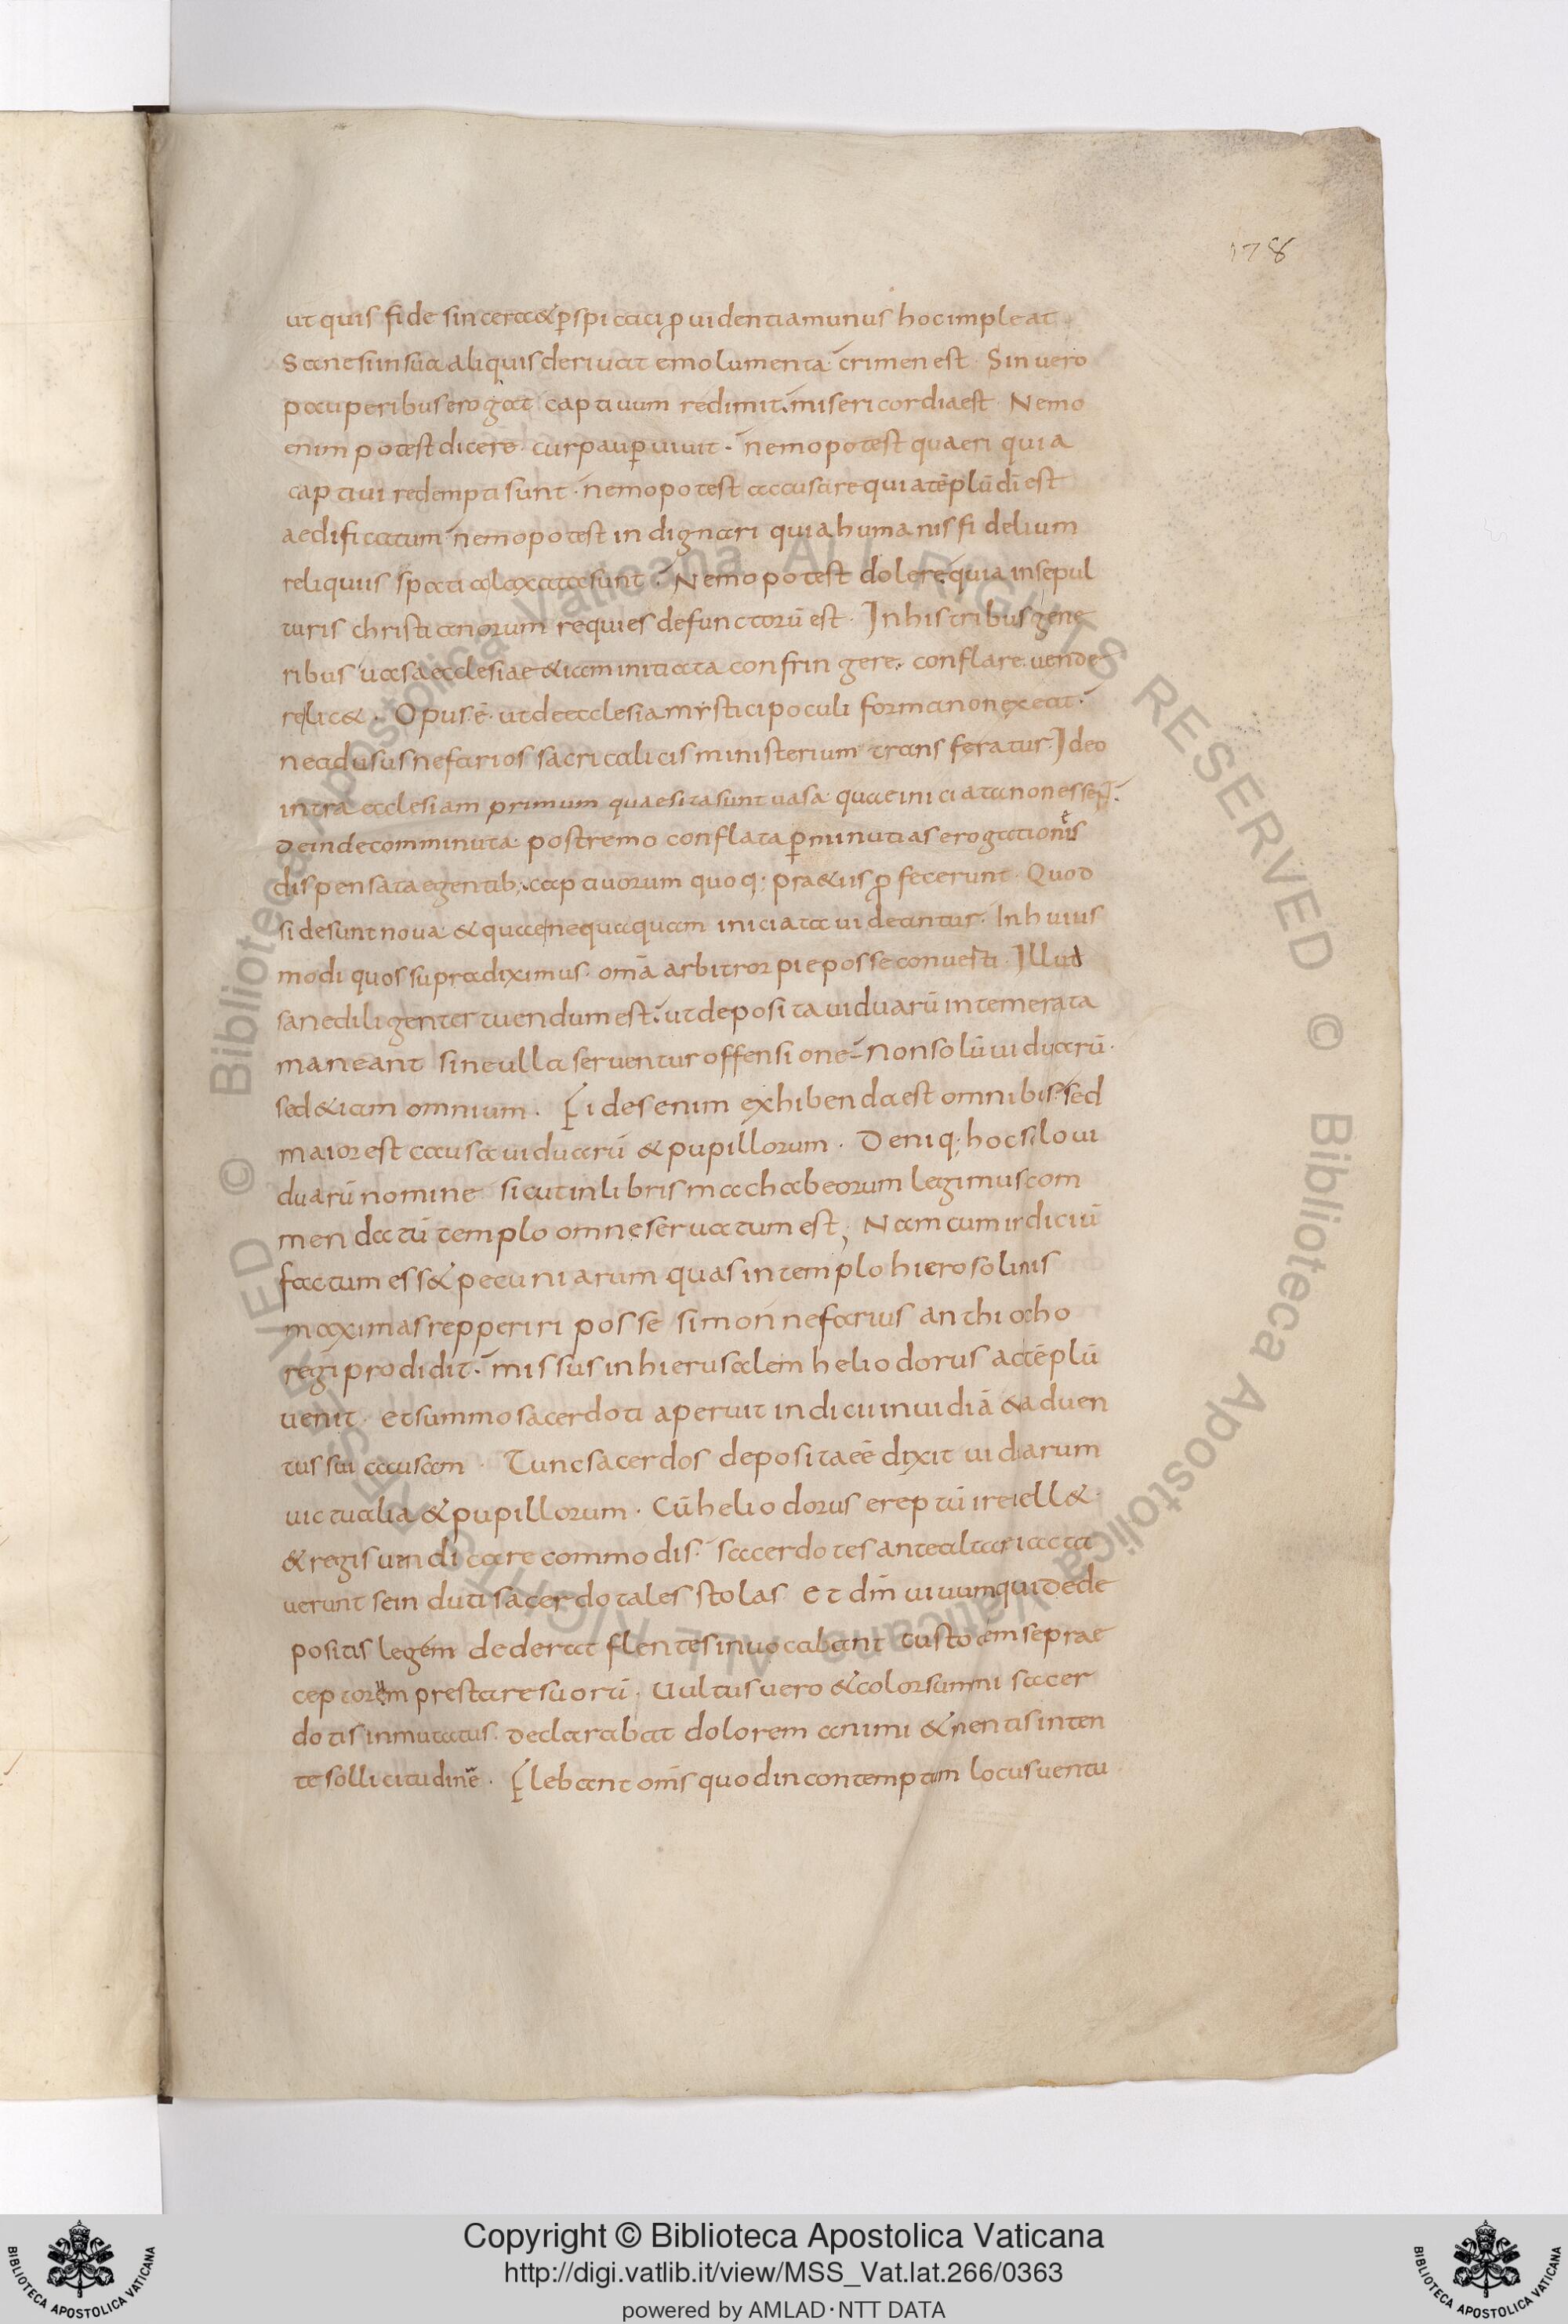 178
ut quis fide sincera & ꝑspicaci ꝓuidentia munus hoc impleat
Sane si in sua aliquis deriuat emolumenta crimen est · Sin uero
pauperibus erogat captiuum redimit. misericordia est · Nemo
enim potest dicere · cur paup̄ uiuit · nemo potest quaeri quia
captiui redempti sunt · nemo potest accusare quia tēplū dī est
aedificatum nemo potest indignari quia humanis fidelium
reliquiis spatia laxata sunt · Nemo potest dolere quia in sepul
turis christianorum requies defunctorū est · In his tribus gene
ribus uasa ecclesiae & iam initiata confringere · conflare uende
re lic& · Opus ē · ut de ecclesia mystici poculi forma non exeat ·
ne ad usus nefarios sacri calicis ministerium transferatur · Ideo
intra ecclesiam primum quaesita sunt uasa quae iniciata non essent ·
Deinde comminuta postremo conflata ꝑ minutias erogationis
dispensata egentib; captiuorum quoq; pra&iis ꝓfecerunt · Quod
si desunt noua & quae nequaquam iniciata uideantur · In huius
modi quos supra diximus omā arbitror pie posse conuerti · Illud
sane diligenter tuendum est · ut deposita uiduarū intemerata
maneant sine ulla seruentur offensione · Non solū uiduarū ·
sed & iam omnium · Fides enim exhibenda est omnibus sed
maior est causa uiduarū & pupillorum · Deniq; hoc silo ui
duarū nomine sicut in libris machabeorum legimus com
mendatū templo omne seruatum est; Nam cum indiciū
factum ess& pecuniarum quas in templo hierosolimis
maximas repperiri posse simon nefarius anthiocho
regi prodidit · missus in hierusalem heliodorus ad tēplū
uenit · et summo sacerdoti aperuit indicii inuidiā & aduen
tus sui causam · Tunc sacerdos deposita eē dixit uiduarum
uictualia & pupillorum · Cū heliodorus ereptū ire uell&
& regis uindicare commodis · sacerdotes ante altare iacta
uerunt se induti sacerdotales stolas et dm̄ uiuum qui de de
positis legem dederat flentes inuocabant custodem se prae
ceptorum prestare suorū · Uultus uero & color summi sacer
dotis inmutatus declarabat dolorem animi & mentis inten
te sollicitudinē · Flebant om̄s quod in contemptum locus uentu
Copyright © Biblioteca Apostolica Vaticana
http://digi.vatlib.it/view/MSS_Vat.lat.266/0363
powered by AMLAD·NTT DATA
BIBLIOTECA APOSTOLICA VATICANA
BIBLIOTECA APOSTOLICA VATICANA
© Biblioteca Apostolica Vaticana ALL RIGHTS RESERVED © Biblioteca Apostolica Vaticana ALL RIGHTS RESERVED